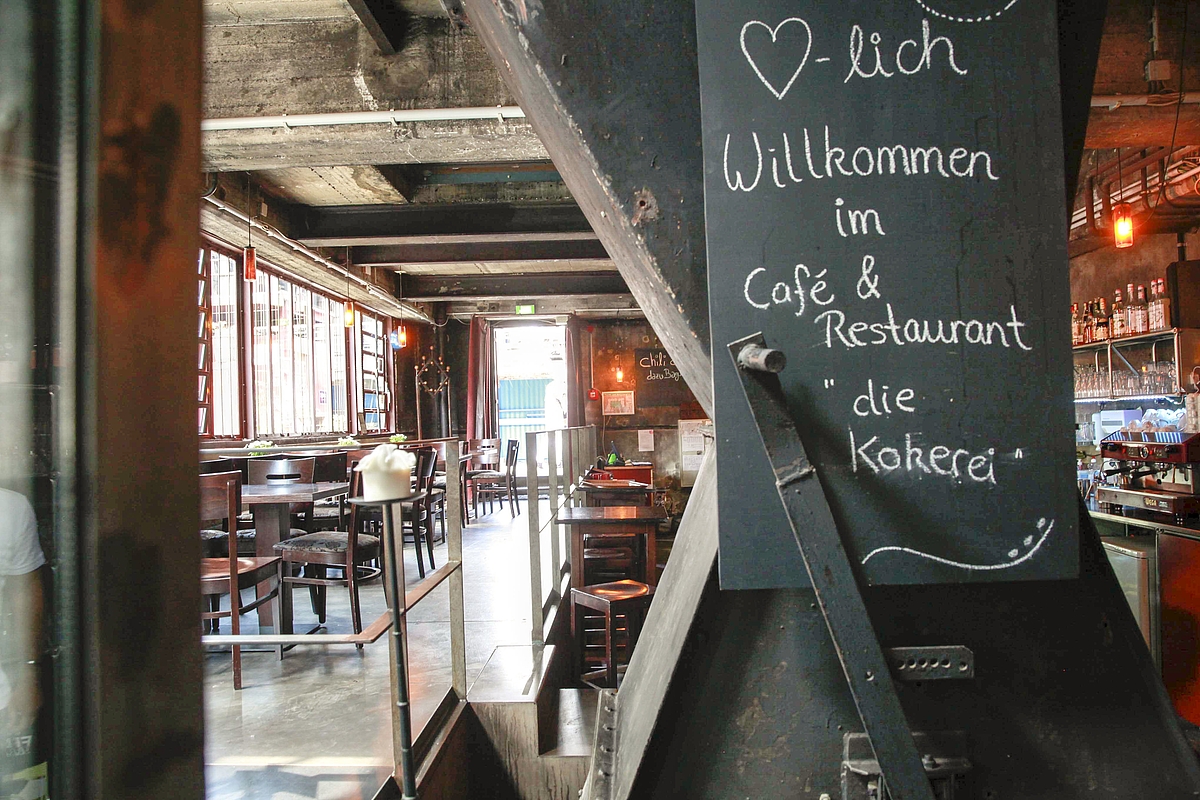 ♡-lich
Willkommen
im
Café &
Restaurant
" die
Kokerei "
Chili
dazu